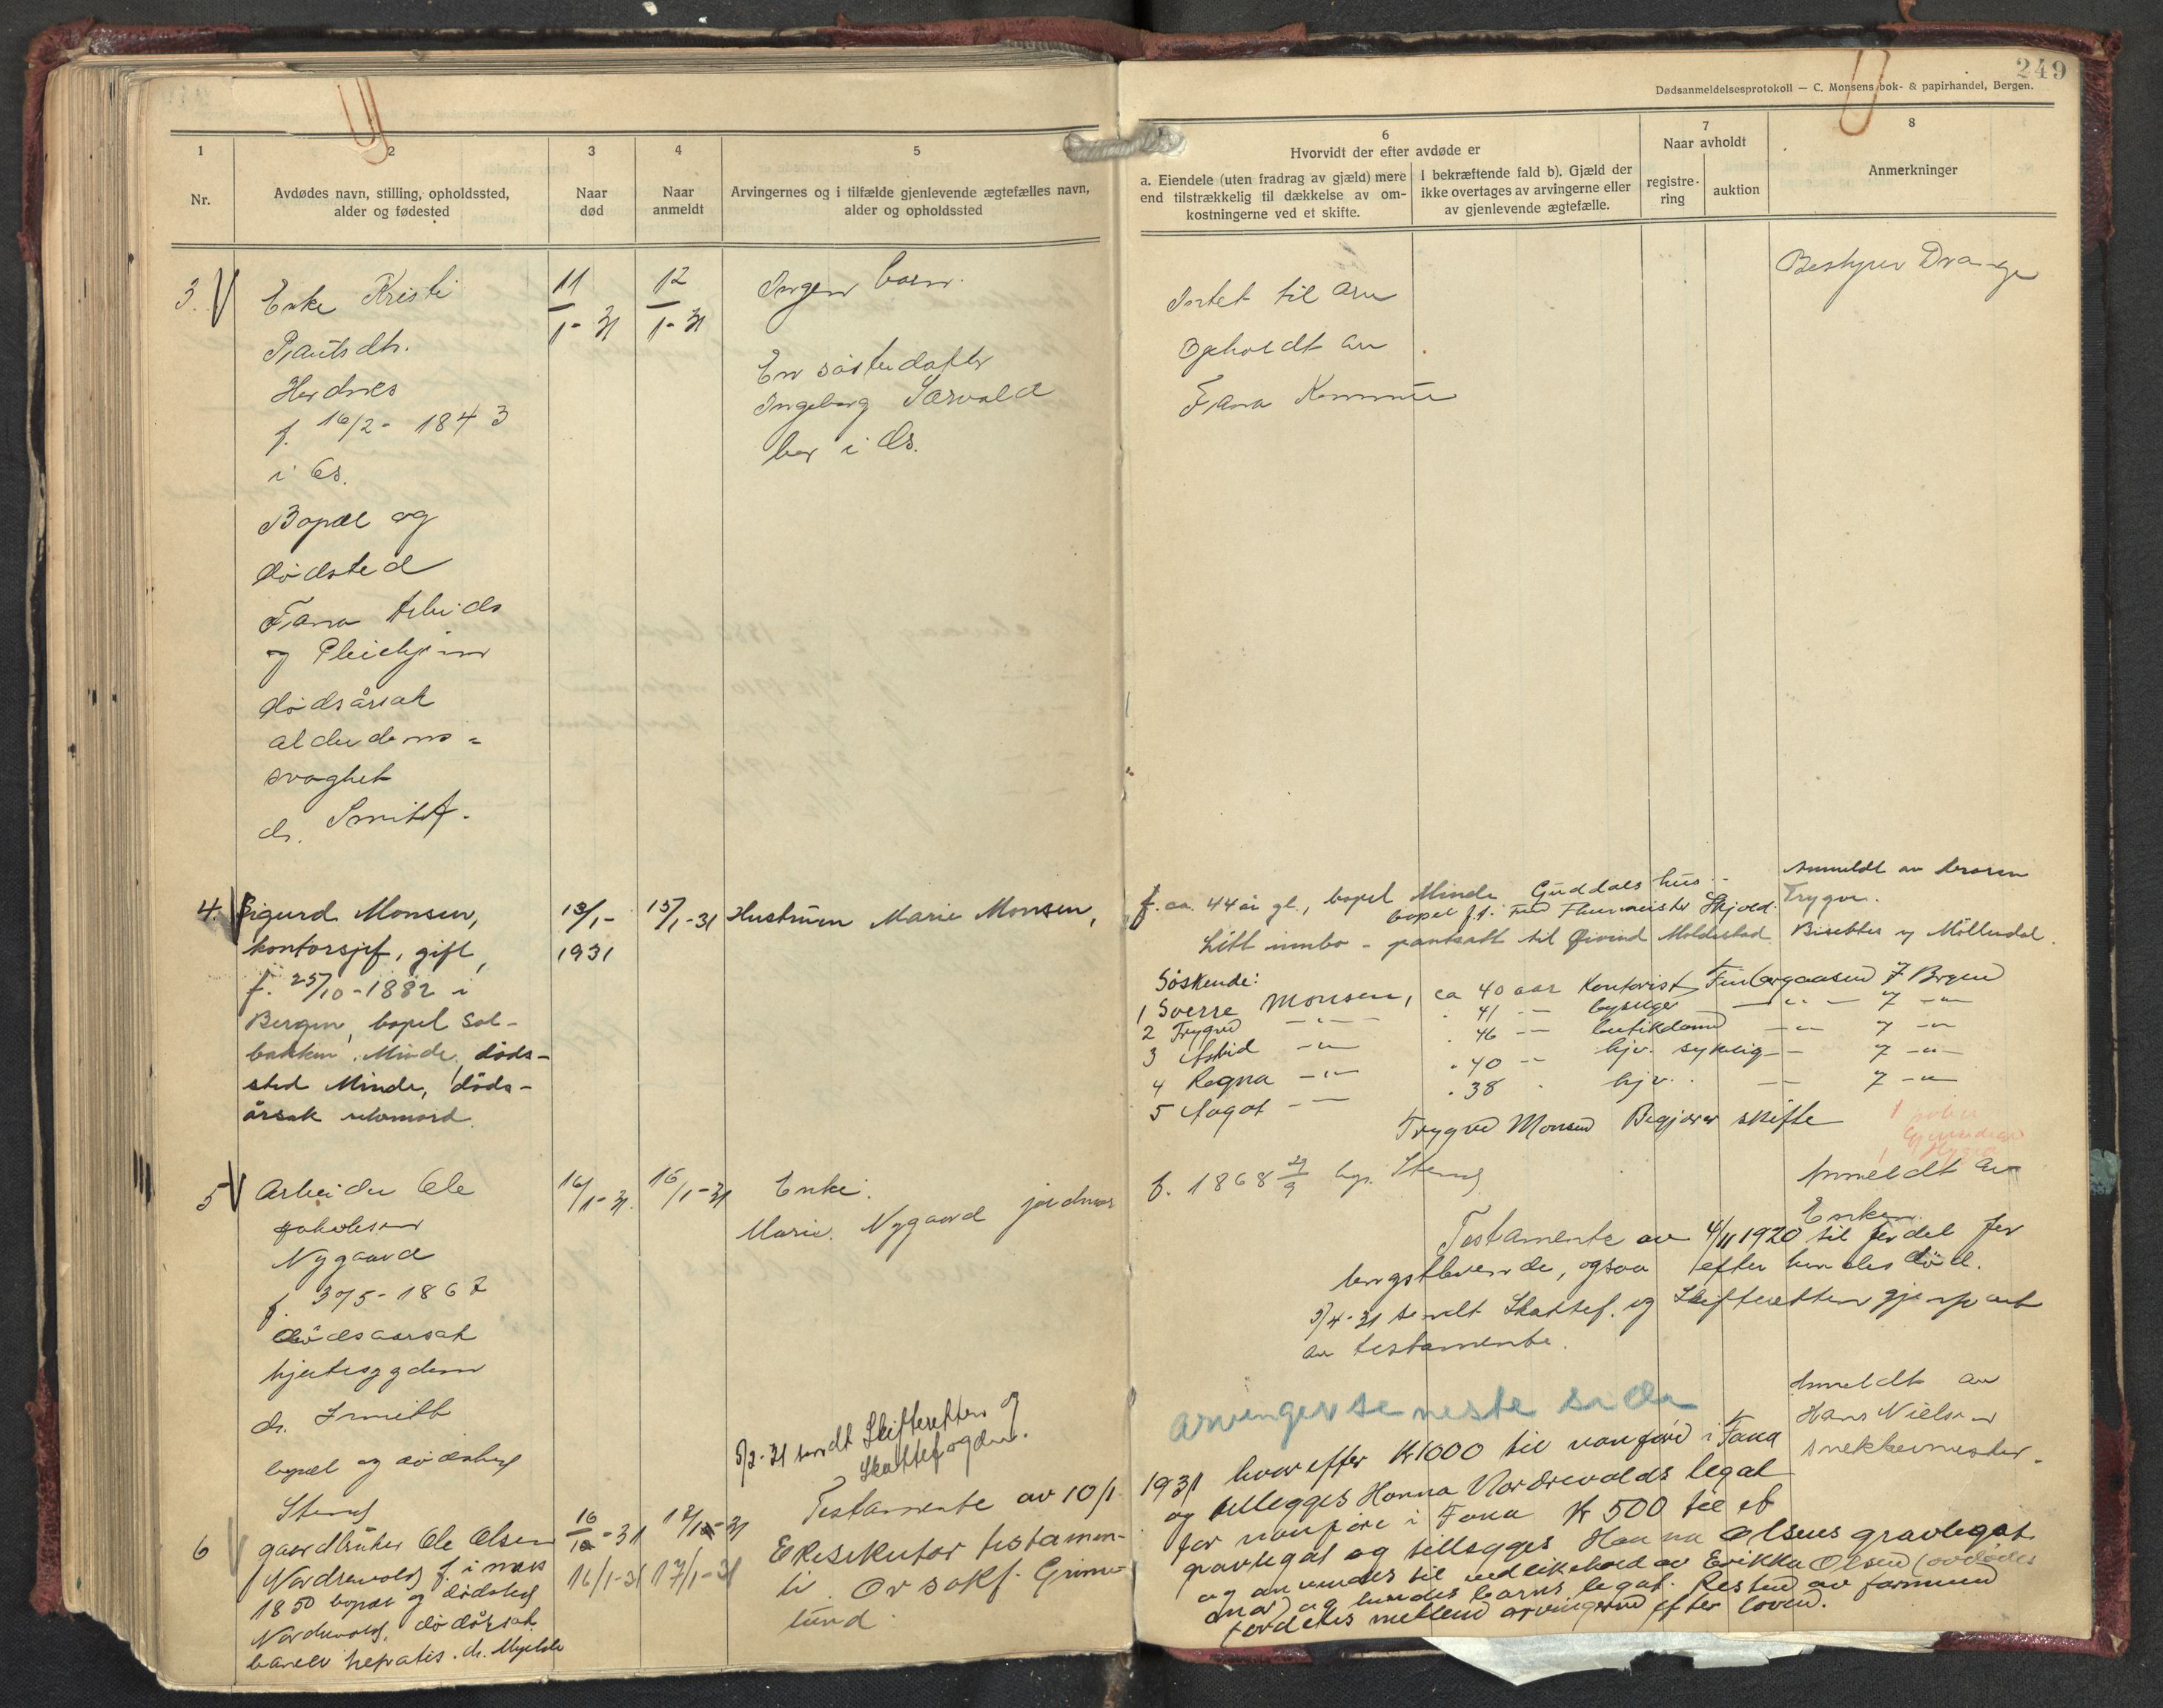 249
Dødsanmeldelsesprotokoll — C. Monsens bok- & papirhandel, Bergen.
1
Nr.
2
Avdødes navn, stilling, opholdssted,
alder og fødested
3
Naar
død
4
Naar
anmeldt
5
Arvingernes og i tilfælde gjenlevende ægtefælles navn,
alder og opholdssted
6
Hvorvidt der efter avdøde er
a. Eiendele (uten fradrag av gjæld) mere
end tilstrækkelig til dækkelse av om-
kostningerne ved et skifte.
I bekræftende fald b). Gjæld der
ikke overtages av arvingerne eller
av gjenlevende ægtefælle.
7
Naar avholdt
registre-
ring
auktion
8
Anmerkninger
3.
Enke Kristi
Herdnes
f. 16/2 - 1843
i Os.
Bopæl og
dødsted
Fana Arbeids
og Pleiehjem
dødsårsak
alderdoms =
svaghet
dr. Smitt.
11/1 - 31
12/1 - 31
Ingen barn.
En søsterdatter
Ingeborg Særvold
bor i Os.
Intet til arv
Opholdt av
Fana Kommune
Bestyrer Drange
4.
Sigurd Monsen,
kontorsjef, gift,
f. 25/10 - 1882 i
Bergen, bopel Sol-
bakken, Minde, døds-
sted Minde, døds-
årsak selvmord.
13/1 -
1931
15/1 - 31
Hustruen Marie Monsen,
f. ca. 44 år gl., bopel Minde Guddals hus.
bopel f.t. Skjold.
Litt innbo - pantsatt til Øivind Moldestad
Anmeldt av broren
Trygve.
Bisettes i Møllendal.
Søskende:
1 Sverre Monsen, ca 40 aar Kontorist, Finbergaasen 7 Brgen
2 Trygve — " — . 41 — " — 7 — " —
3 Astrid — " — . 46 — butikdame — " — 7 — " —
4 Ragna — " — . 40 — " hjv. sykelig — 7 — " —
5 Aagot — " — . 38 . hjv. . — 7 — " —
Trygve Monsen Begjærer skifte
5
Arbeider Ole
Jakobsen
Nygaard
f. 3/5 - 1867
dødsaarsak
hjertesygdom
dr. Smitt
bopæl og dødssted
Stend
16/1 - 31.
16/1 - 31
Enke.
Marie Nygaard jordmor
f. 1868 29/9 bop. Stend
Anmeldt av
Enken.
Testamente av 4/11 1920 til fordel for
lengstlevende, ogsaa efter hendes død.
5/4 - 31 sendt Skattef. og Skifteretten gjenpart
av testamente.
6
gaardbruker Ole Olsen
Nordrevold f. i mars
1850 bopæl og dødssted
Nordrevold, dødsårsak
cancer hepatis. dr. Mjelde
16/1 - 31
17/1 - 31
5/2 - 31 sendt Skifteretten og
Skattefogden.
Testamente av 10/1
Eksekutor testamen-
ti. Or sakf. Grime-
lund.
arvinger se neste side
Anmeldt av
Hans Nielsen
snekkermester.
1931 hvorefter Kr 1000 til vanføre i Fana
og tillegges Hanna Nordrevolds legat
for vanføre i Fana Kr 500 til et
gravlegat og tillegges Hanna Olsens gravlegat
og anvendes til vedlikehold av Erikka Olsen (avdødes
mor) og hendes barns legat. Resten av formuen
fordeles mellem arvingerne efter loven.